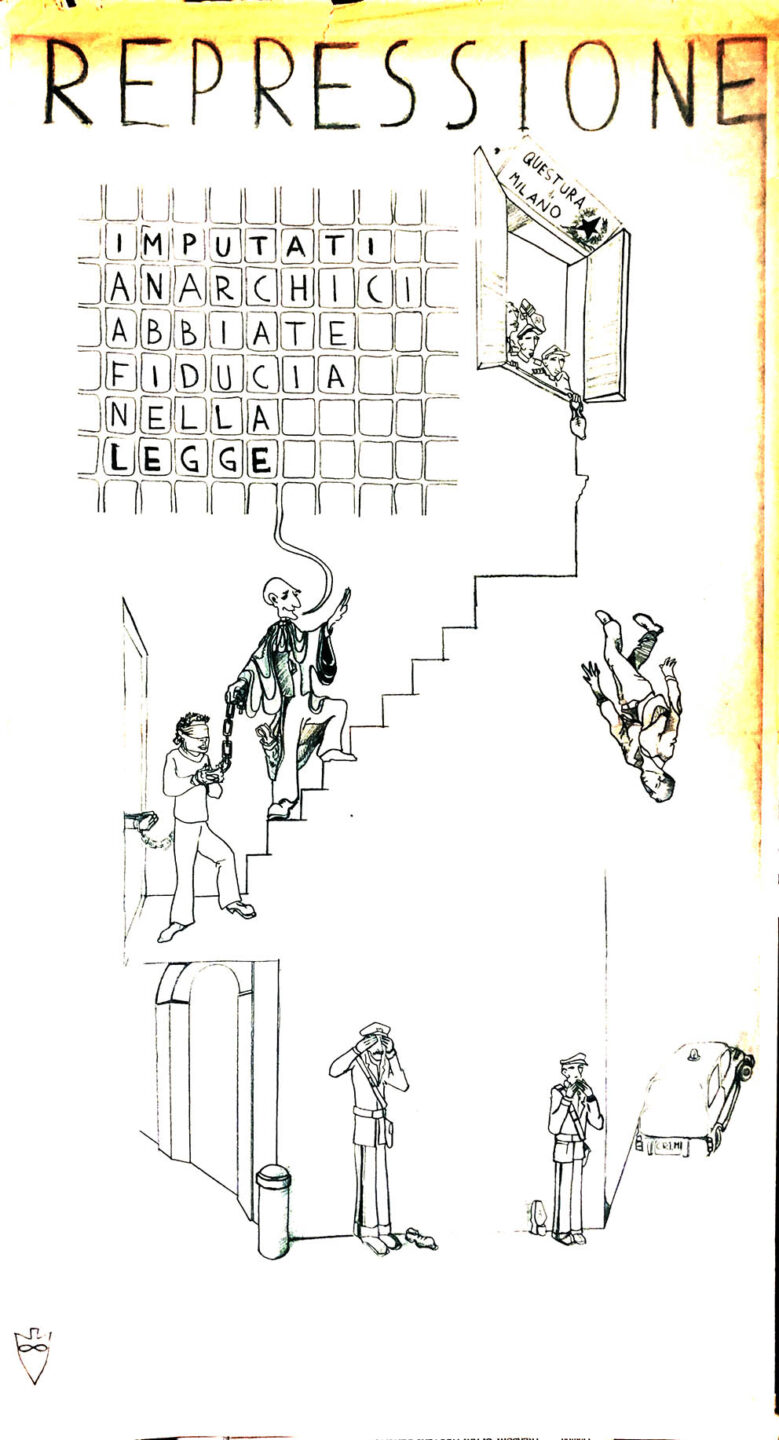 REPRESSIONE
QUESTURA
di
MILANO
IMPUTATI
ANARCHICI
ABBIATE
FIDUCIA
NELLA
LEGGE